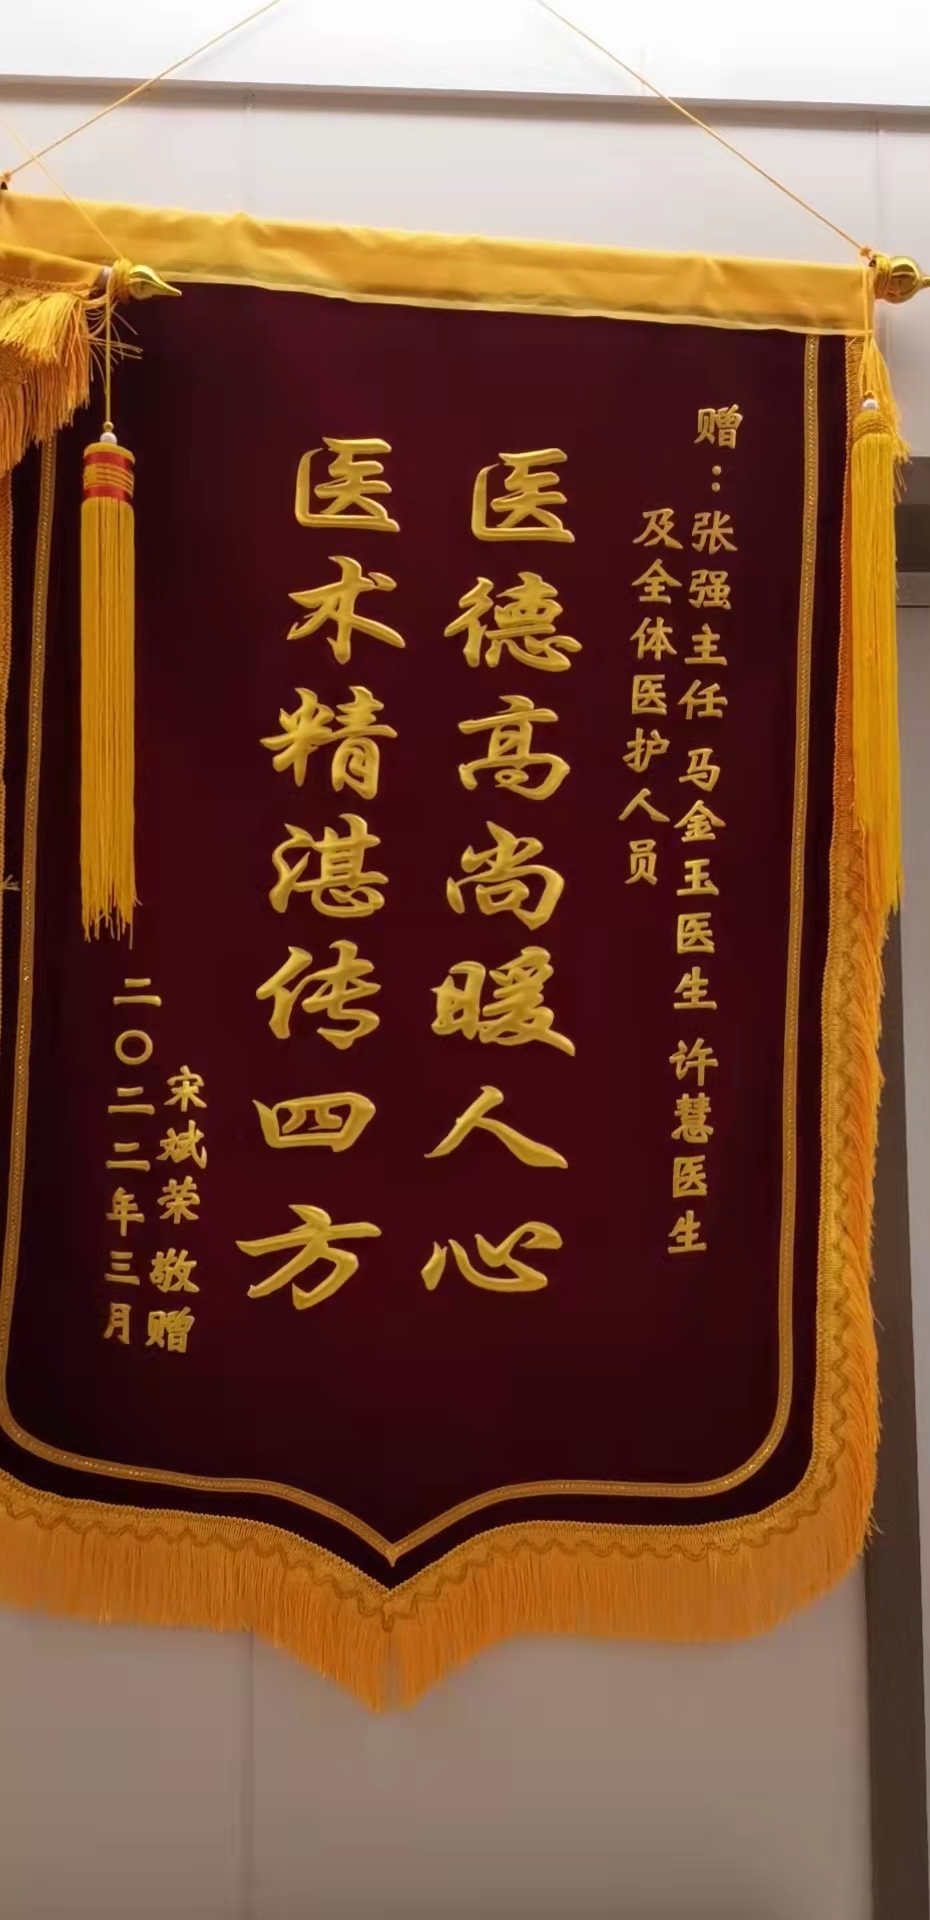 赠：张强主任 马金玉医生 许慧医生
及全体医护人员
医德高尚暖人心
医术精湛传四方
宋斌荣 敬赠
二〇二二年三月